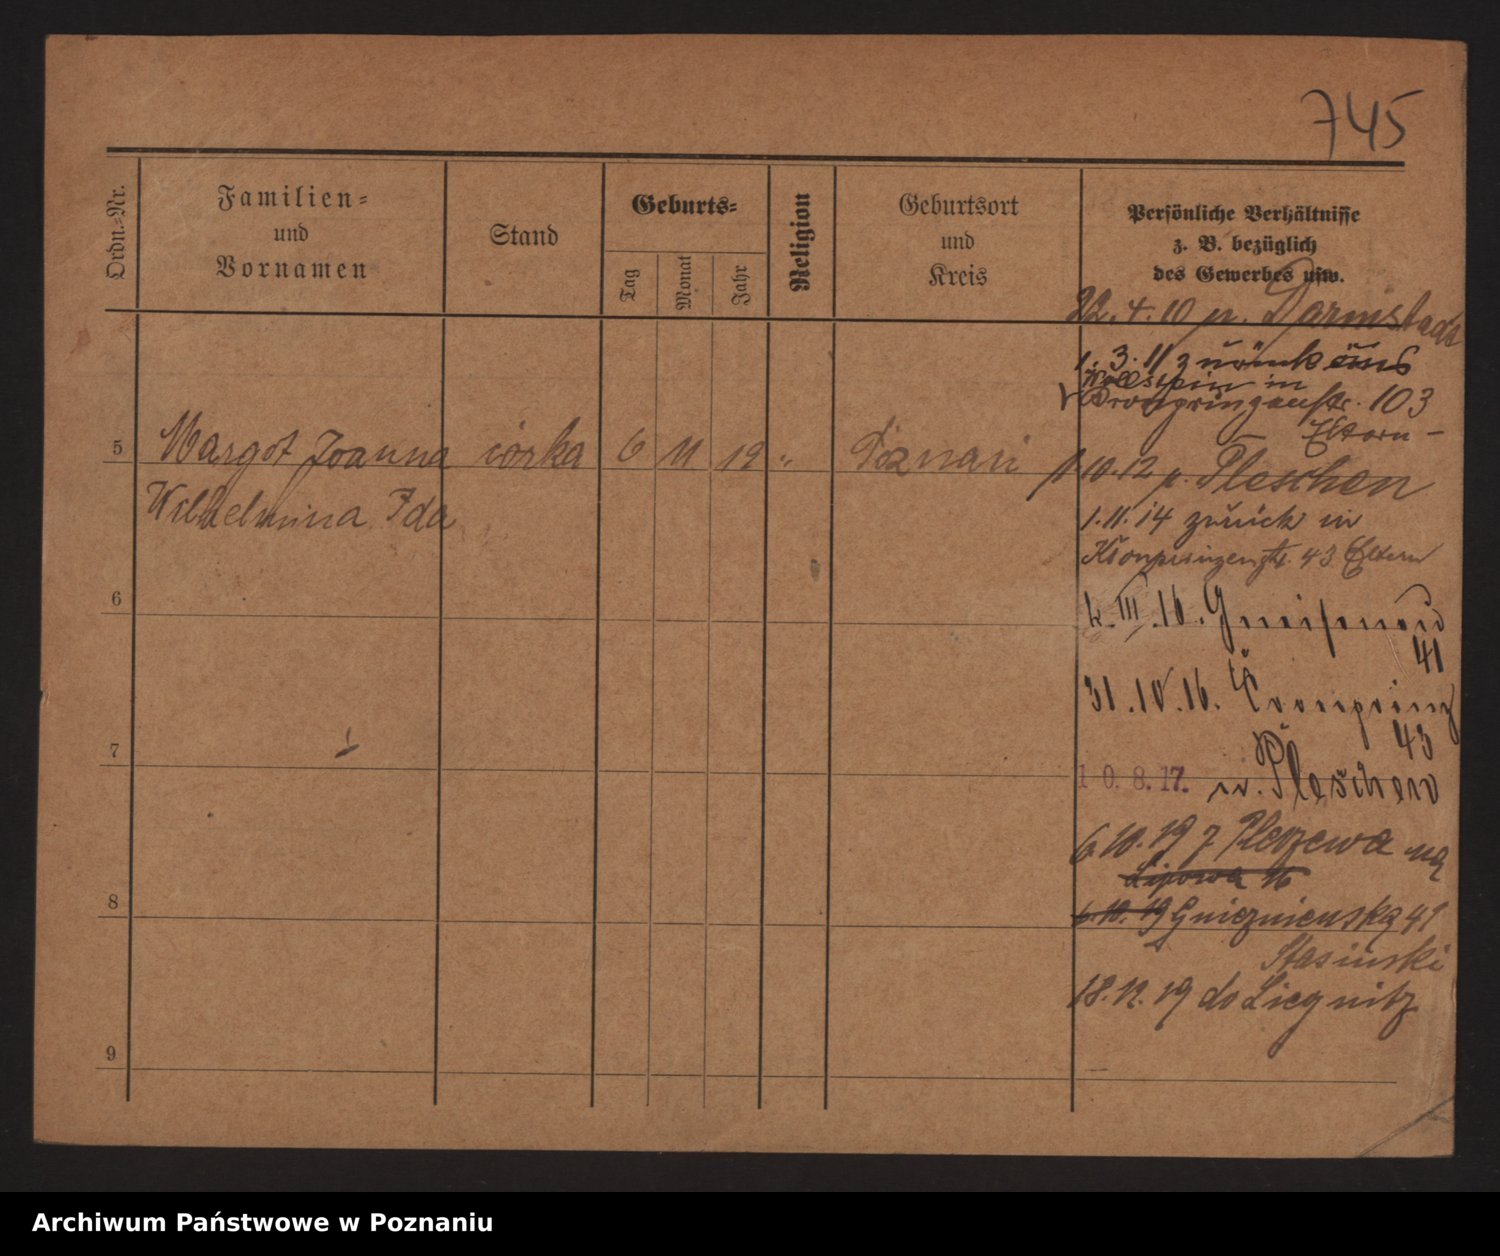 745
Ordn.-Nr.
Familien-
und
Vornamen
Stand
Geburts-
Tag
Monat
Jahr
Religion
Geburtsort
und
Kreis
Persönliche Verhältnisse
z. B. bezüglich
des Gewerbes usw.
22.4.10 n. Darmstadt
1.3.11 zurück aus
Wollstein in
Kronprinzenstr. 103
Eltern -
5 Margot Joanna córka 6 11 19 " Poznań
1 10.12 n. Pleschen
Wilhelmina Ida
1.11.14 zurück in
Kronprinzenstr. 43 Eltern
6
III.16. Gneisenau
41
31.IV.16. Kronprinz
43
7
10.8.17. n. Pleschen
6 10.19 z Pleszewa na
Lipowa 16
8
6.10.19 Gnieźnieńska 41
Stasiński
18.12.19 do Liegnitz
9
Archiwum Państwowe w Poznaniu